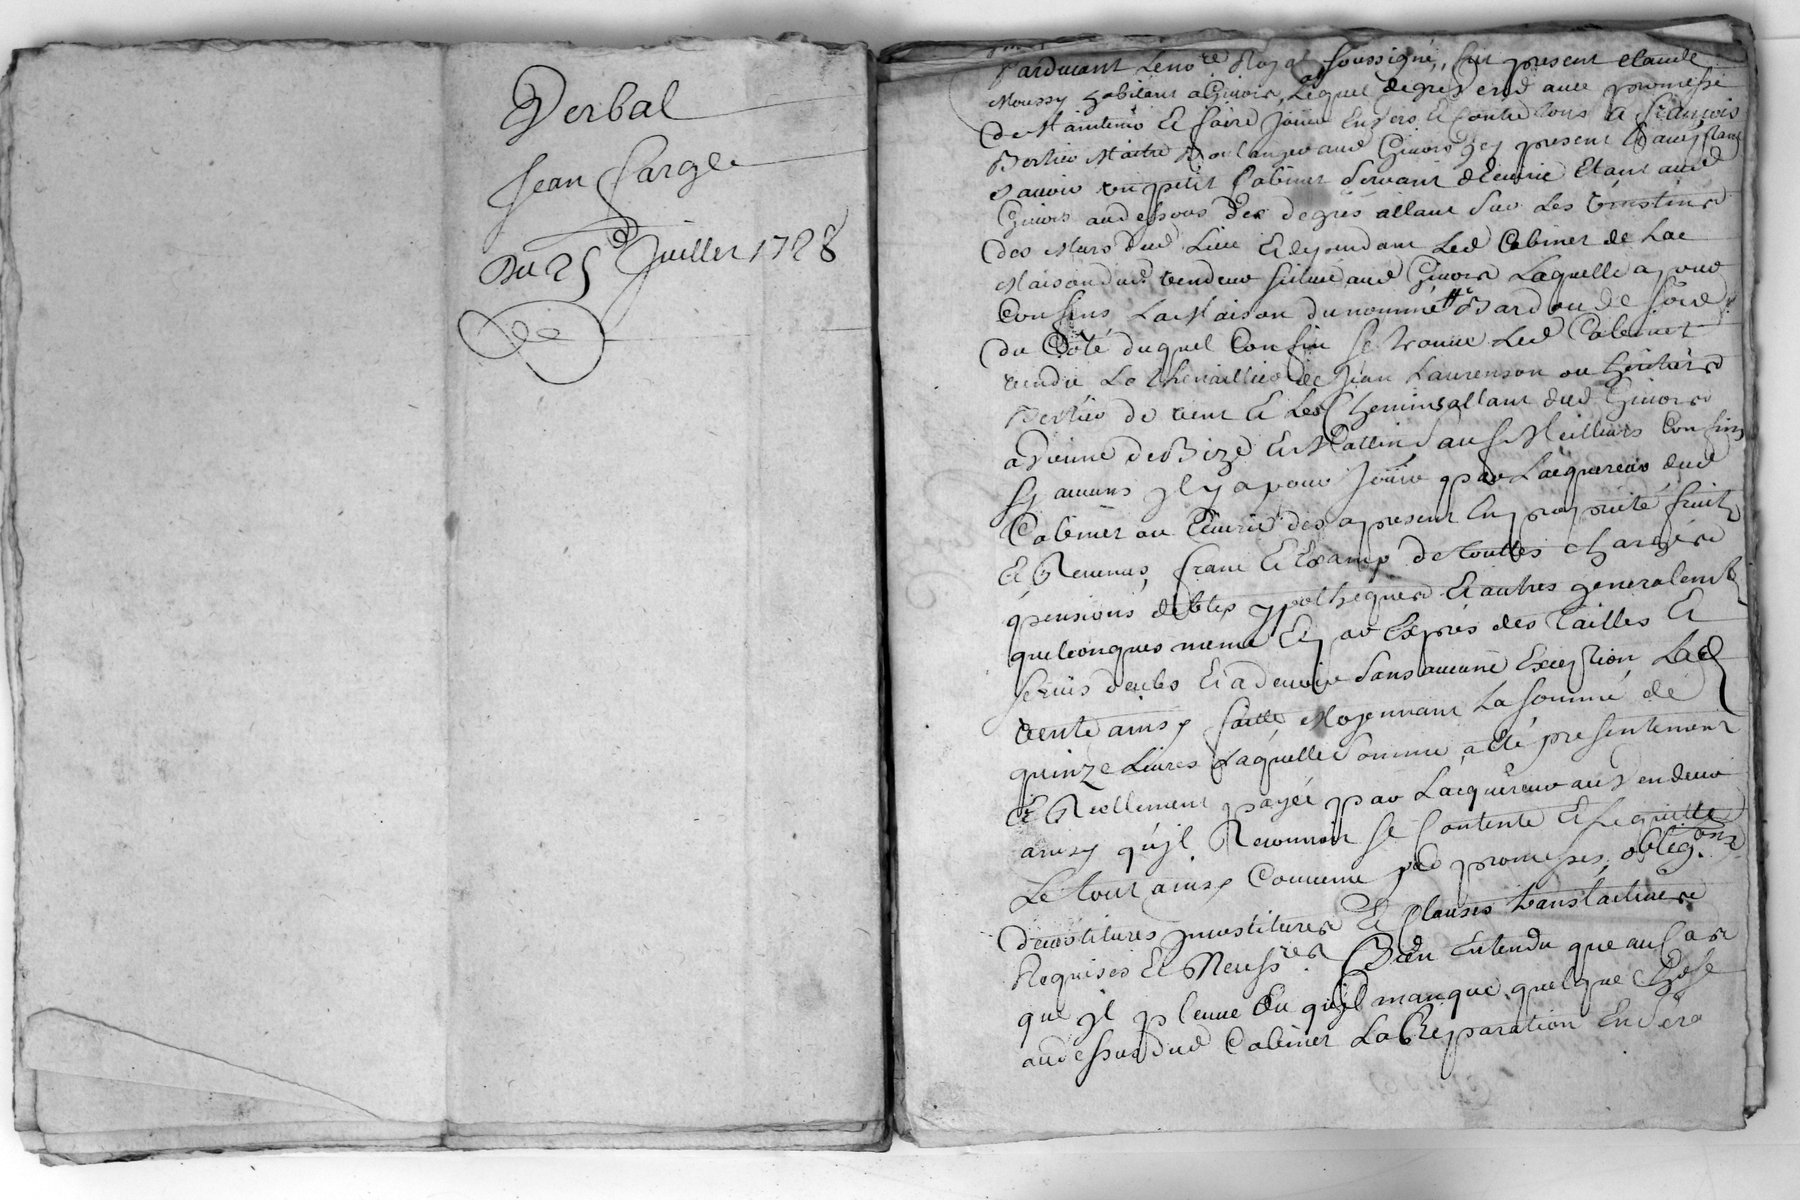 Verbal
Jean Farge
Du 25e Juillet 1728
Pardevant Le nore Royal soussigné, fut present claude
Moussy habitant a Givors, Lequel de gré vend avec promesse
de Maintenir et faire jouir Envers et Contre tous a françois
Bertier Maitre Boulanger aud Givors Jcy present Et acceptant
sauoir un petit Cabinet servant d'Ecurie Etant aud
Givors au dessous des degrés allant sur Les
des Murs dud Lieu Et dependant Led Cabinet de La
Maison dud vendeur située aud Givors Laquelle a pour
Confins La Maison du nommé Bardou de soird
du Coté duquel Confin se trouve Led Cabinet
vendu de Jean Laurenson ou heritiers
Bertier de vent Et Les Chemins allant dud Givors
a Vienne de Bize Et Mattin sauf Meilleurs Confins
sy aucuns Jl y a pour Jouir par Lacquereur dud
Cabinet ou Ecurie des a present En proprieté fruits
Et Revenus, franc Et Exampt de touttes charges
pensions debtes ypotheques Et autres generalemt
quelconques meme Et par Exprés des Tailles Et
servis deubs Et a devoir sans aucune Exception, Lad
vente ainsy faitte Moyennant La somme de
quinze Livres Laquelle somme a été presentement
Et Reellement payée par Lacquereur au Vendeur
ainsy qu'jl Reconnoit se Contente Et Le quitte
Le tout ainsy Convenu par promesses, obligons
devestitures jnvestitures Et Clauses translatives
Requises Et Necessres. Bien Entendu que au Cas
que jl pleuve Ou qu'jl manque quelque Chose
au dessus dud Cabinet La Reparation En sera